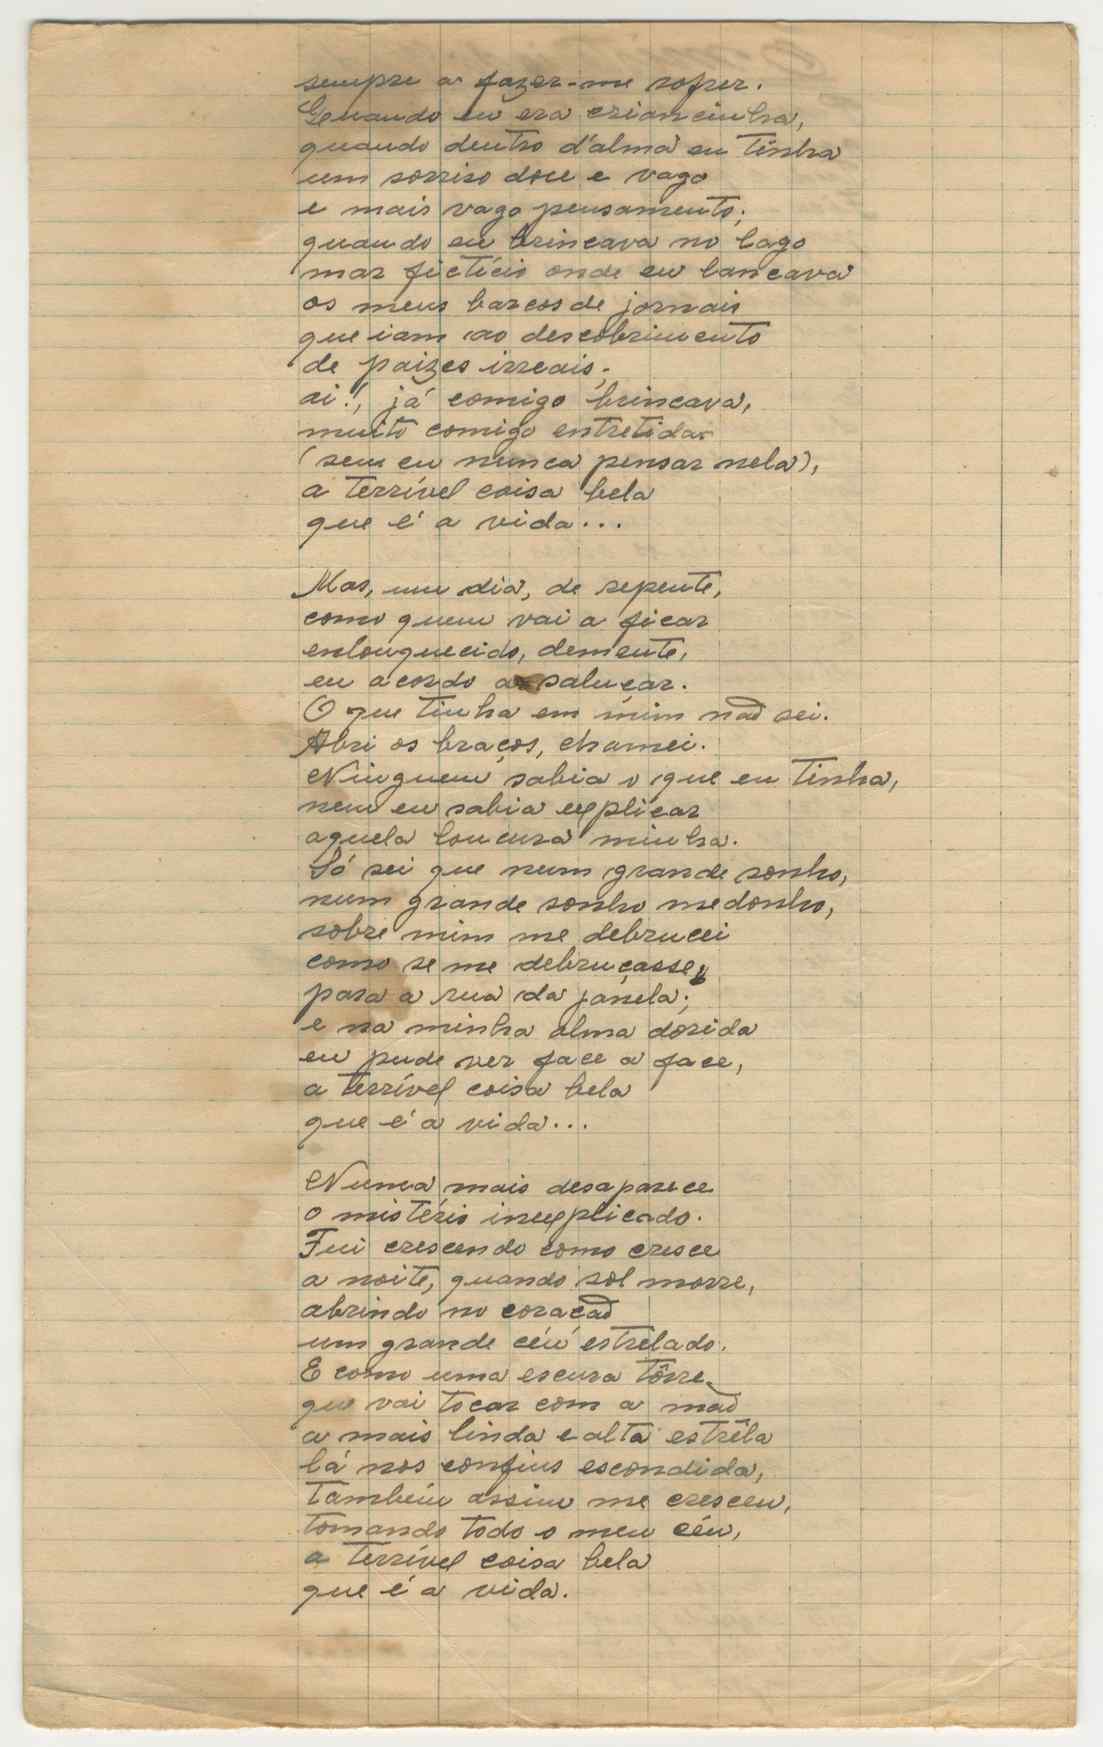 sempre a fazer-me sofrer.
Quando eu era criancinha,
quando dentro d'alma eu tinha
um sorriso doce e vago
e mais vago pensamento;
quando eu brincava no lago
mar fictício onde eu lançava
os meus barcos de jornais
que iam ao descobrimento
de paizes irreais,
ai!, já comigo brincava,
muito comigo entretida
(sem eu nunca pensar nela),
a terrível coisa bela
que é a vida...

Mas, um dia, de repente,
como quem vai a ficar
enlouquecido, demente,
eu acordo a saluçar.
O que tinha em mim não sei.
Abri os braços, chamei.
Ninguem sabia o que eu tinha,
nem eu sabia explicar
aquela loucura minha.
Só sei que num grande sonho,
num grande sonho medonho,
sobre mim me debrucei
como se me debruçasse,
para a rua da janela;
e na minha alma dorida
eu pude ver face a face,
a terrível coisa bela
que é a vida...

Nunca mais desaparece
o mistério inexplicado.
Fui crescendo como cresce
a noite, quando sol morre,
abrindo no coração
um grande céu estrelado.
E como uma escura tôrre
que vai tocar com a mão
a mais linda e alta estrêla
lá nos confins escondida,
também assim me cresceu,
tomando todo o meu céu,
a terrível coisa bela
que é a vida.